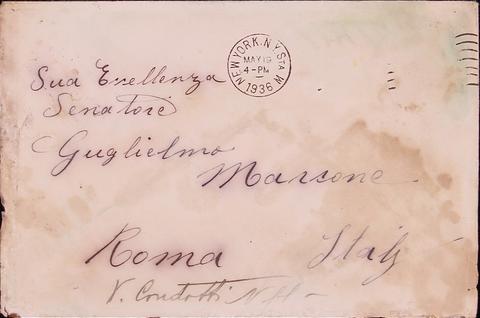 NEW YORK, N.Y. STA. W
MAY 19
4-PM
1936
Sua Exellenza
Senatore
Guglielmo
Marcone
Roma Italy
V. Condotti